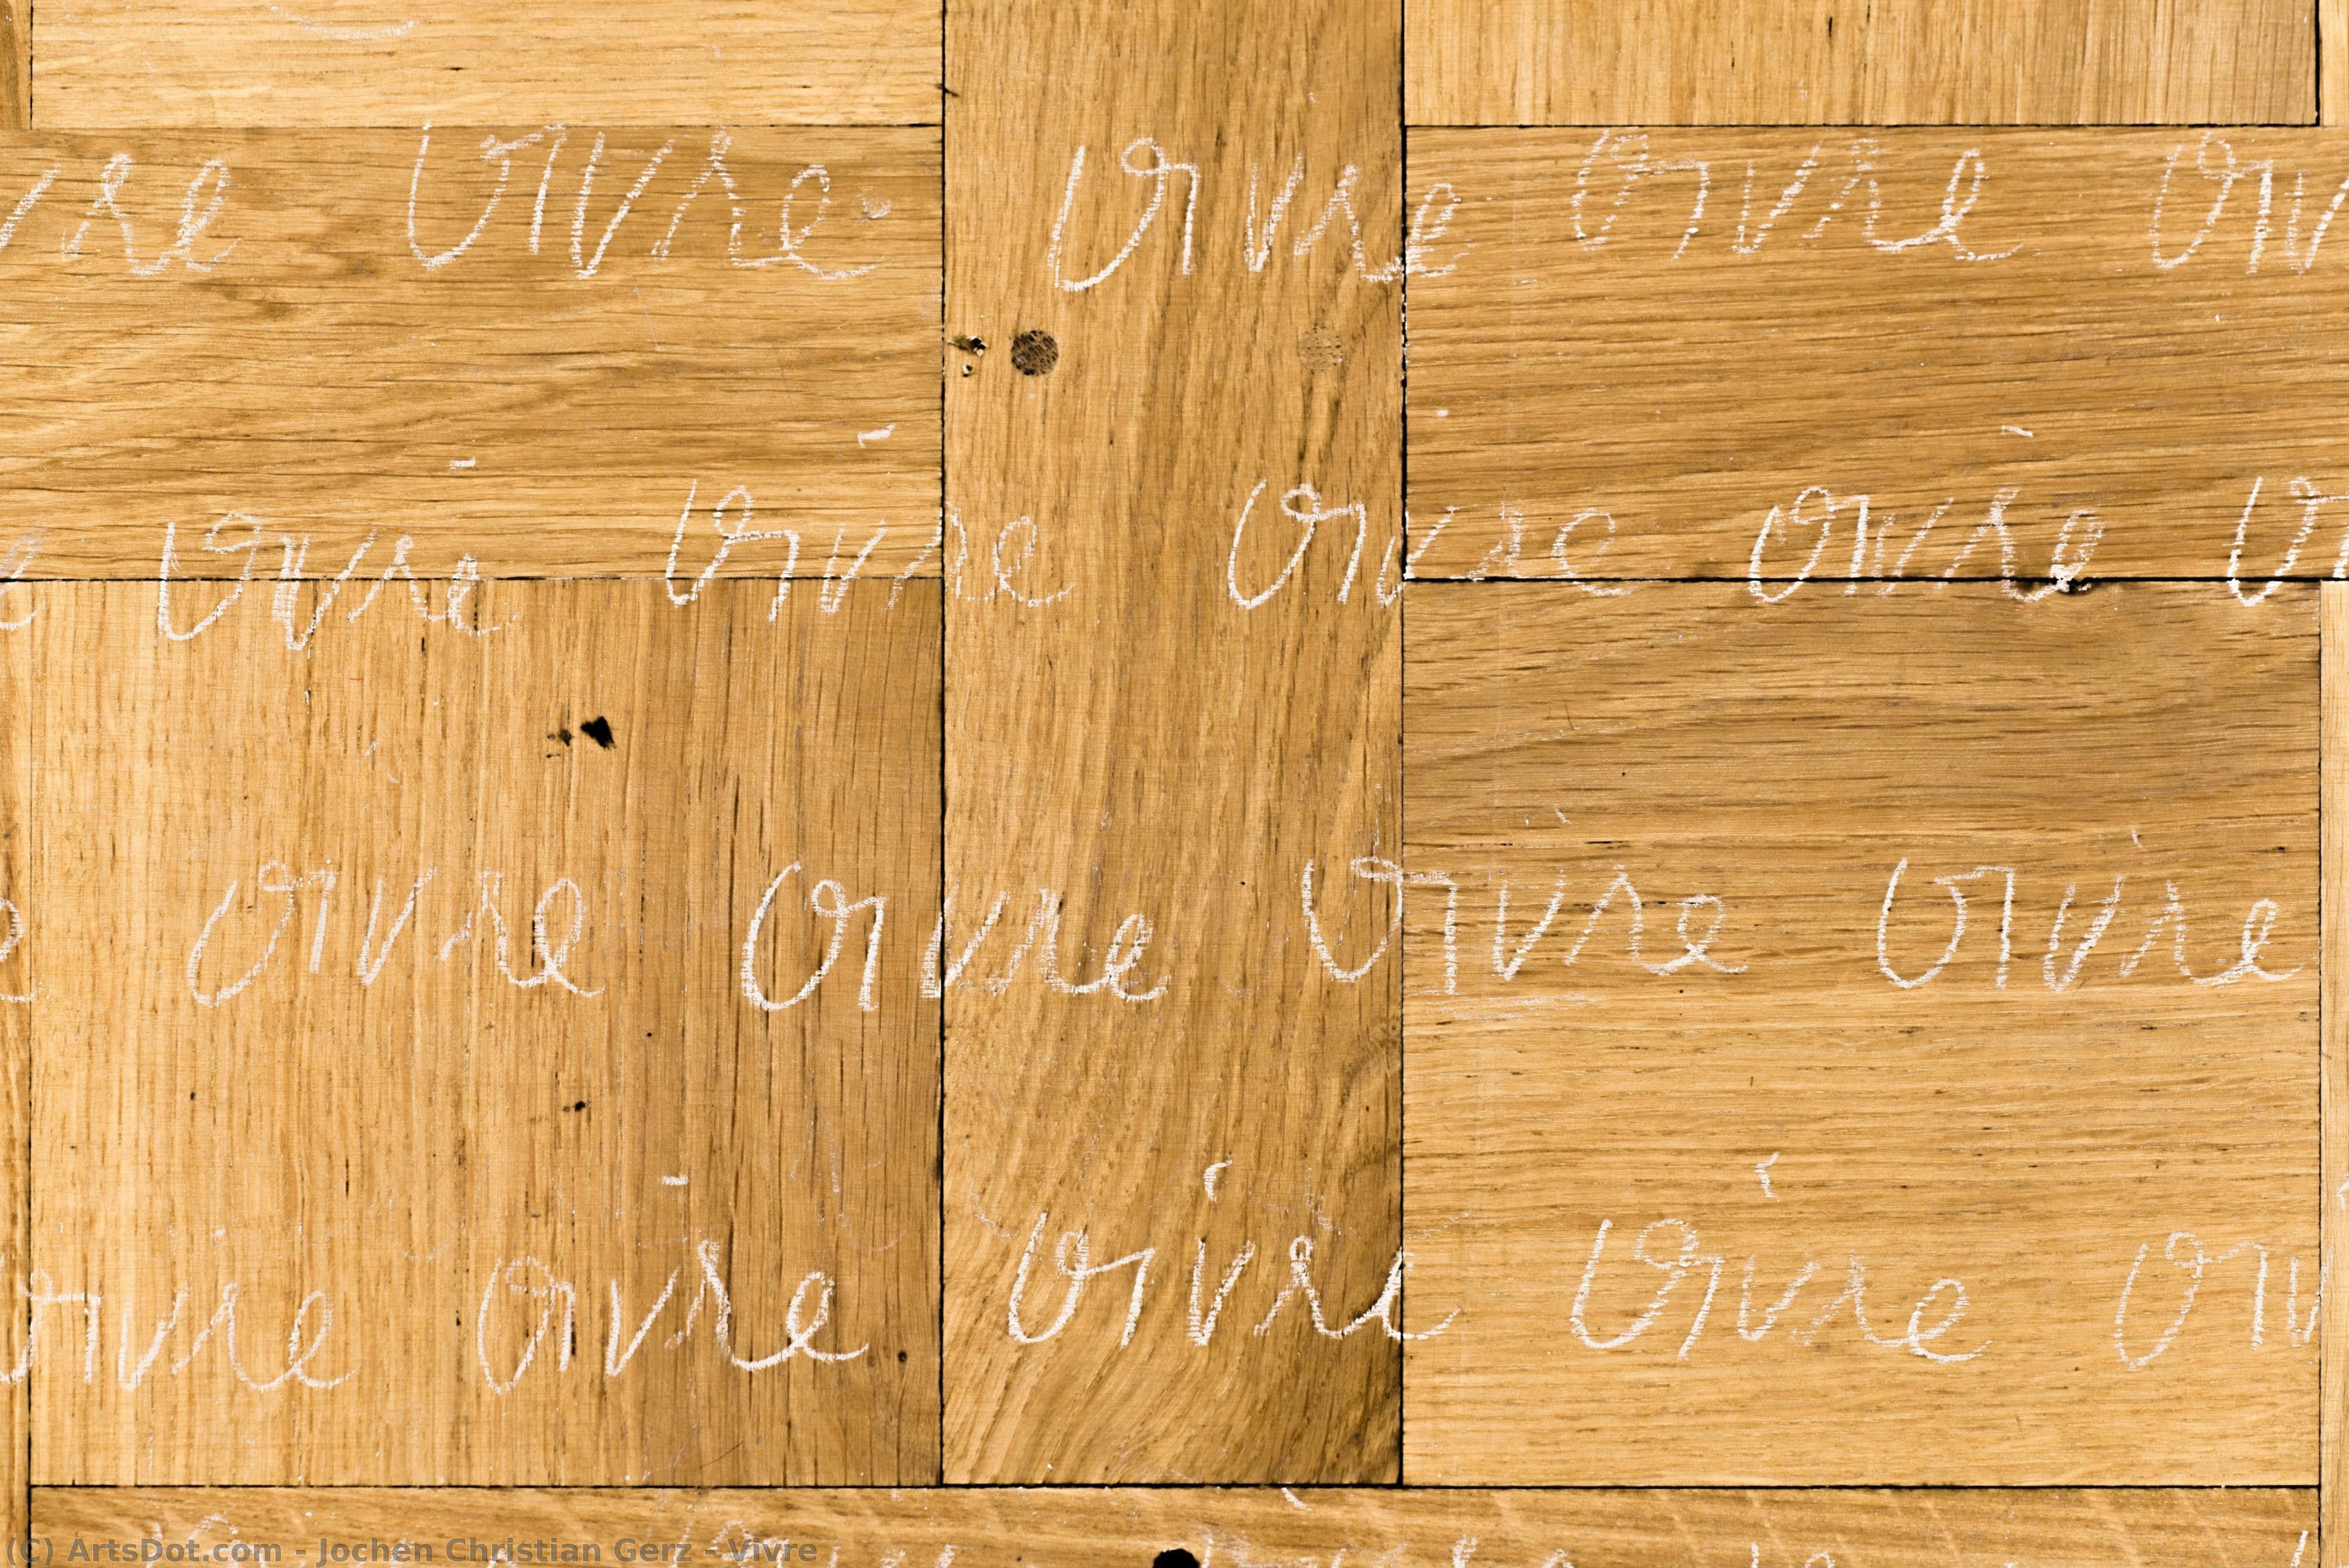 vre vivre vivre vivre viv
e vivre vivre vivre vivre vi
e vivre vivre vivre vivre
ivre vivre vivre vivre viv
(C) ArtsDot.com - Jochen Christian Gerz - Vivre